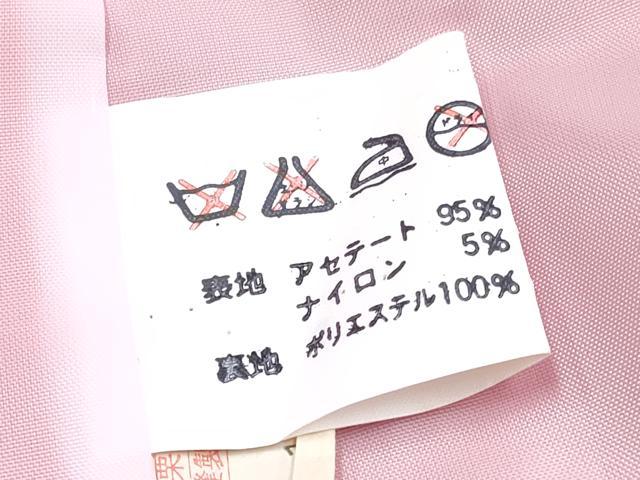 中
表地 アセテート 95%
ナイロン 5%
裏地 ポリエステル 100%